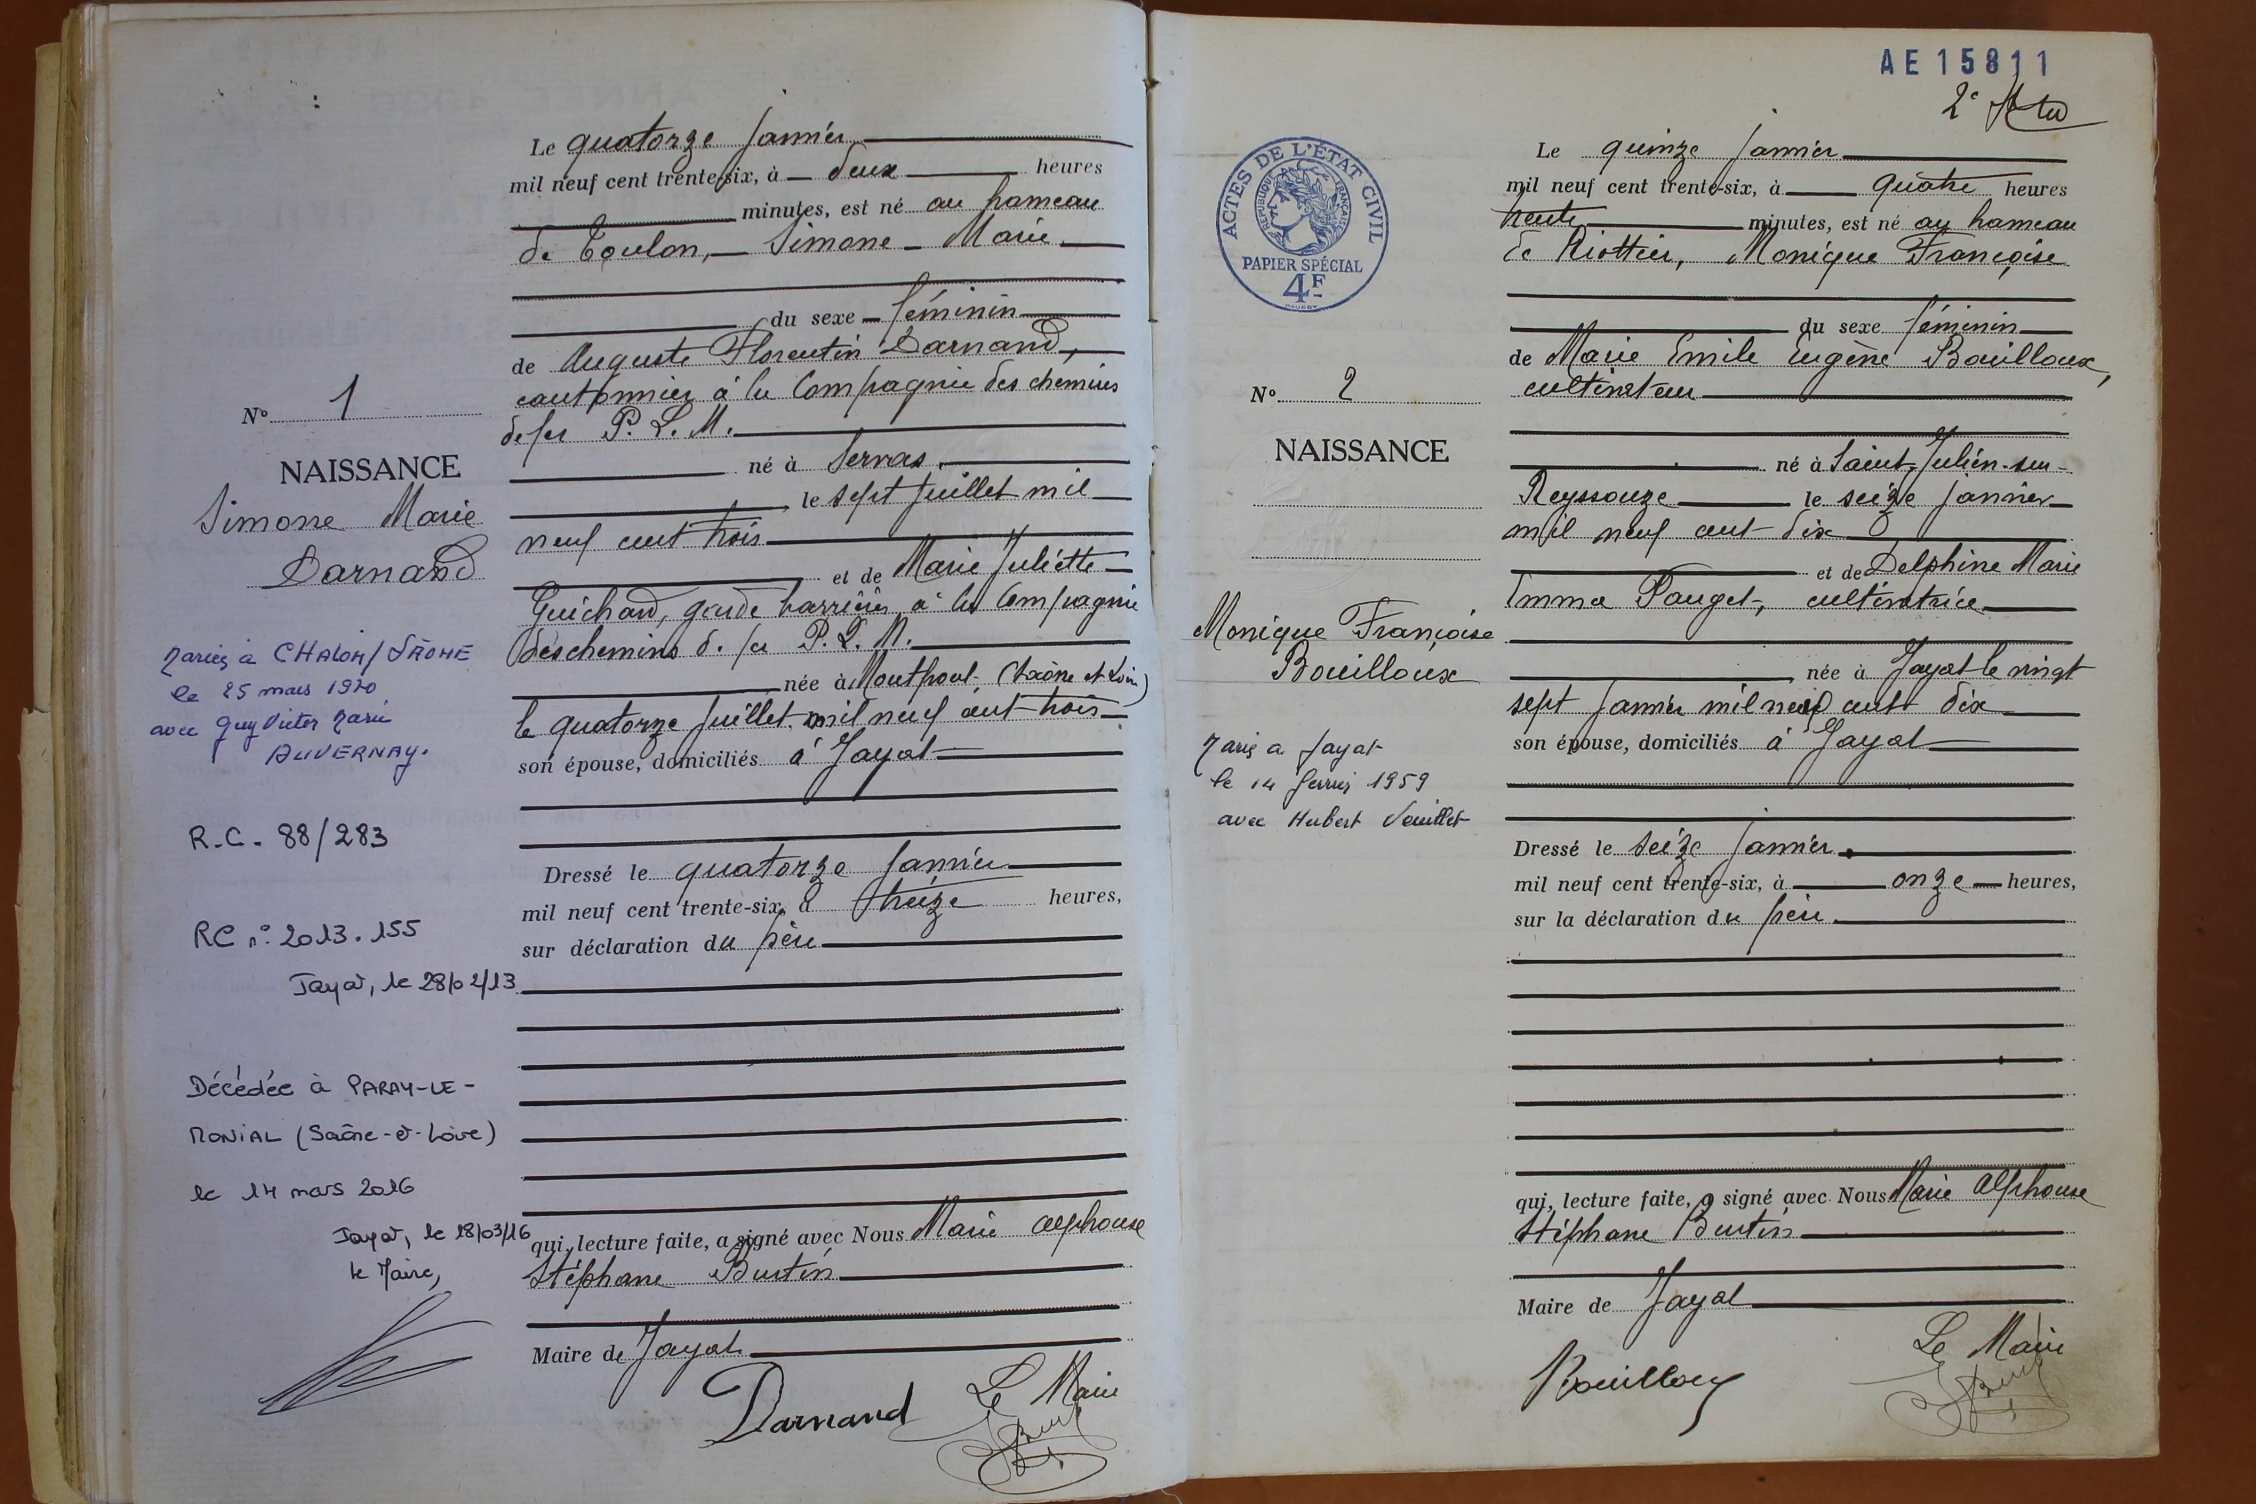 Le quatorze janvier
mil neuf cent trente-six, à deux heures
minutes, est né au hameau
de Toulon, Simone Marie
du sexe féminin
de Auguste Florentin Darnand,
cantonnier à la Compagnie des chemins
de fer P. L. M.
né à Servas,
le sept juillet mil
neuf cent trois
et de Marie Juliette
Guichard, garde barrières à la Compagnie
des chemins de fer P. L. M.
née à Montpont, (Saône et Loire)
le quatorze juillet mil neuf cent trois
son épouse, domiciliés à Jayat
Dressé le quatorze janvier
mil neuf cent trente-six, à treize heures,
sur déclaration du père
qui, lecture faite, a signé avec Nous Marie Alphonse
Stéphane Burtin
Maire de Jayat
Darnand
Le Maire
No 1
NAISSANCE
Simone Marie
Darnand
Mariée à CHALON/SAÔNE
le 25 mars 1970
avec Guy Victor Marie
AUVERNAY.
R.C. 88/283
RC n° 2013.155
Jayat, le 28/02/13
Décédée à PARAY-LE-
MONIAL (Saône-et-Loire)
le 14 mars 2016
Jayat, le 18/03/16
le Maire,
AE 15811
2e
ACTES DE L'ÉTAT CIVIL
RÉPUBLIQUE FRANÇAISE
PAPIER SPÉCIAL
4F
Le quinze janvier
mil neuf cent trente-six, à quatre heures
trente minutes, est né au hameau
de Riottier, Monique Françoise
du sexe féminin
de Marie Emile Eugène Bouilloux,
cultivateur
né à Saint-Julien-sur-
Reyssouze le seize janvier
mil neuf cent dix
et de Delphine Marie
Emma Pauget, cultivatrice
née à Jayat le vingt
sept janvier mil neuf cent dix
son épouse, domiciliés à Jayat
Dressé le seize janvier
mil neuf cent trente-six, à onze heures,
sur la déclaration du père.
qui, lecture faite, a signé avec Nous Marie Alphonse
Stéphane Burtin
Maire de Jayat
Bouilloux
Le Maire
No 2
NAISSANCE
Monique Françoise
Bouilloux
Mariée a Jayat
le 14 février 1959
avec Hubert